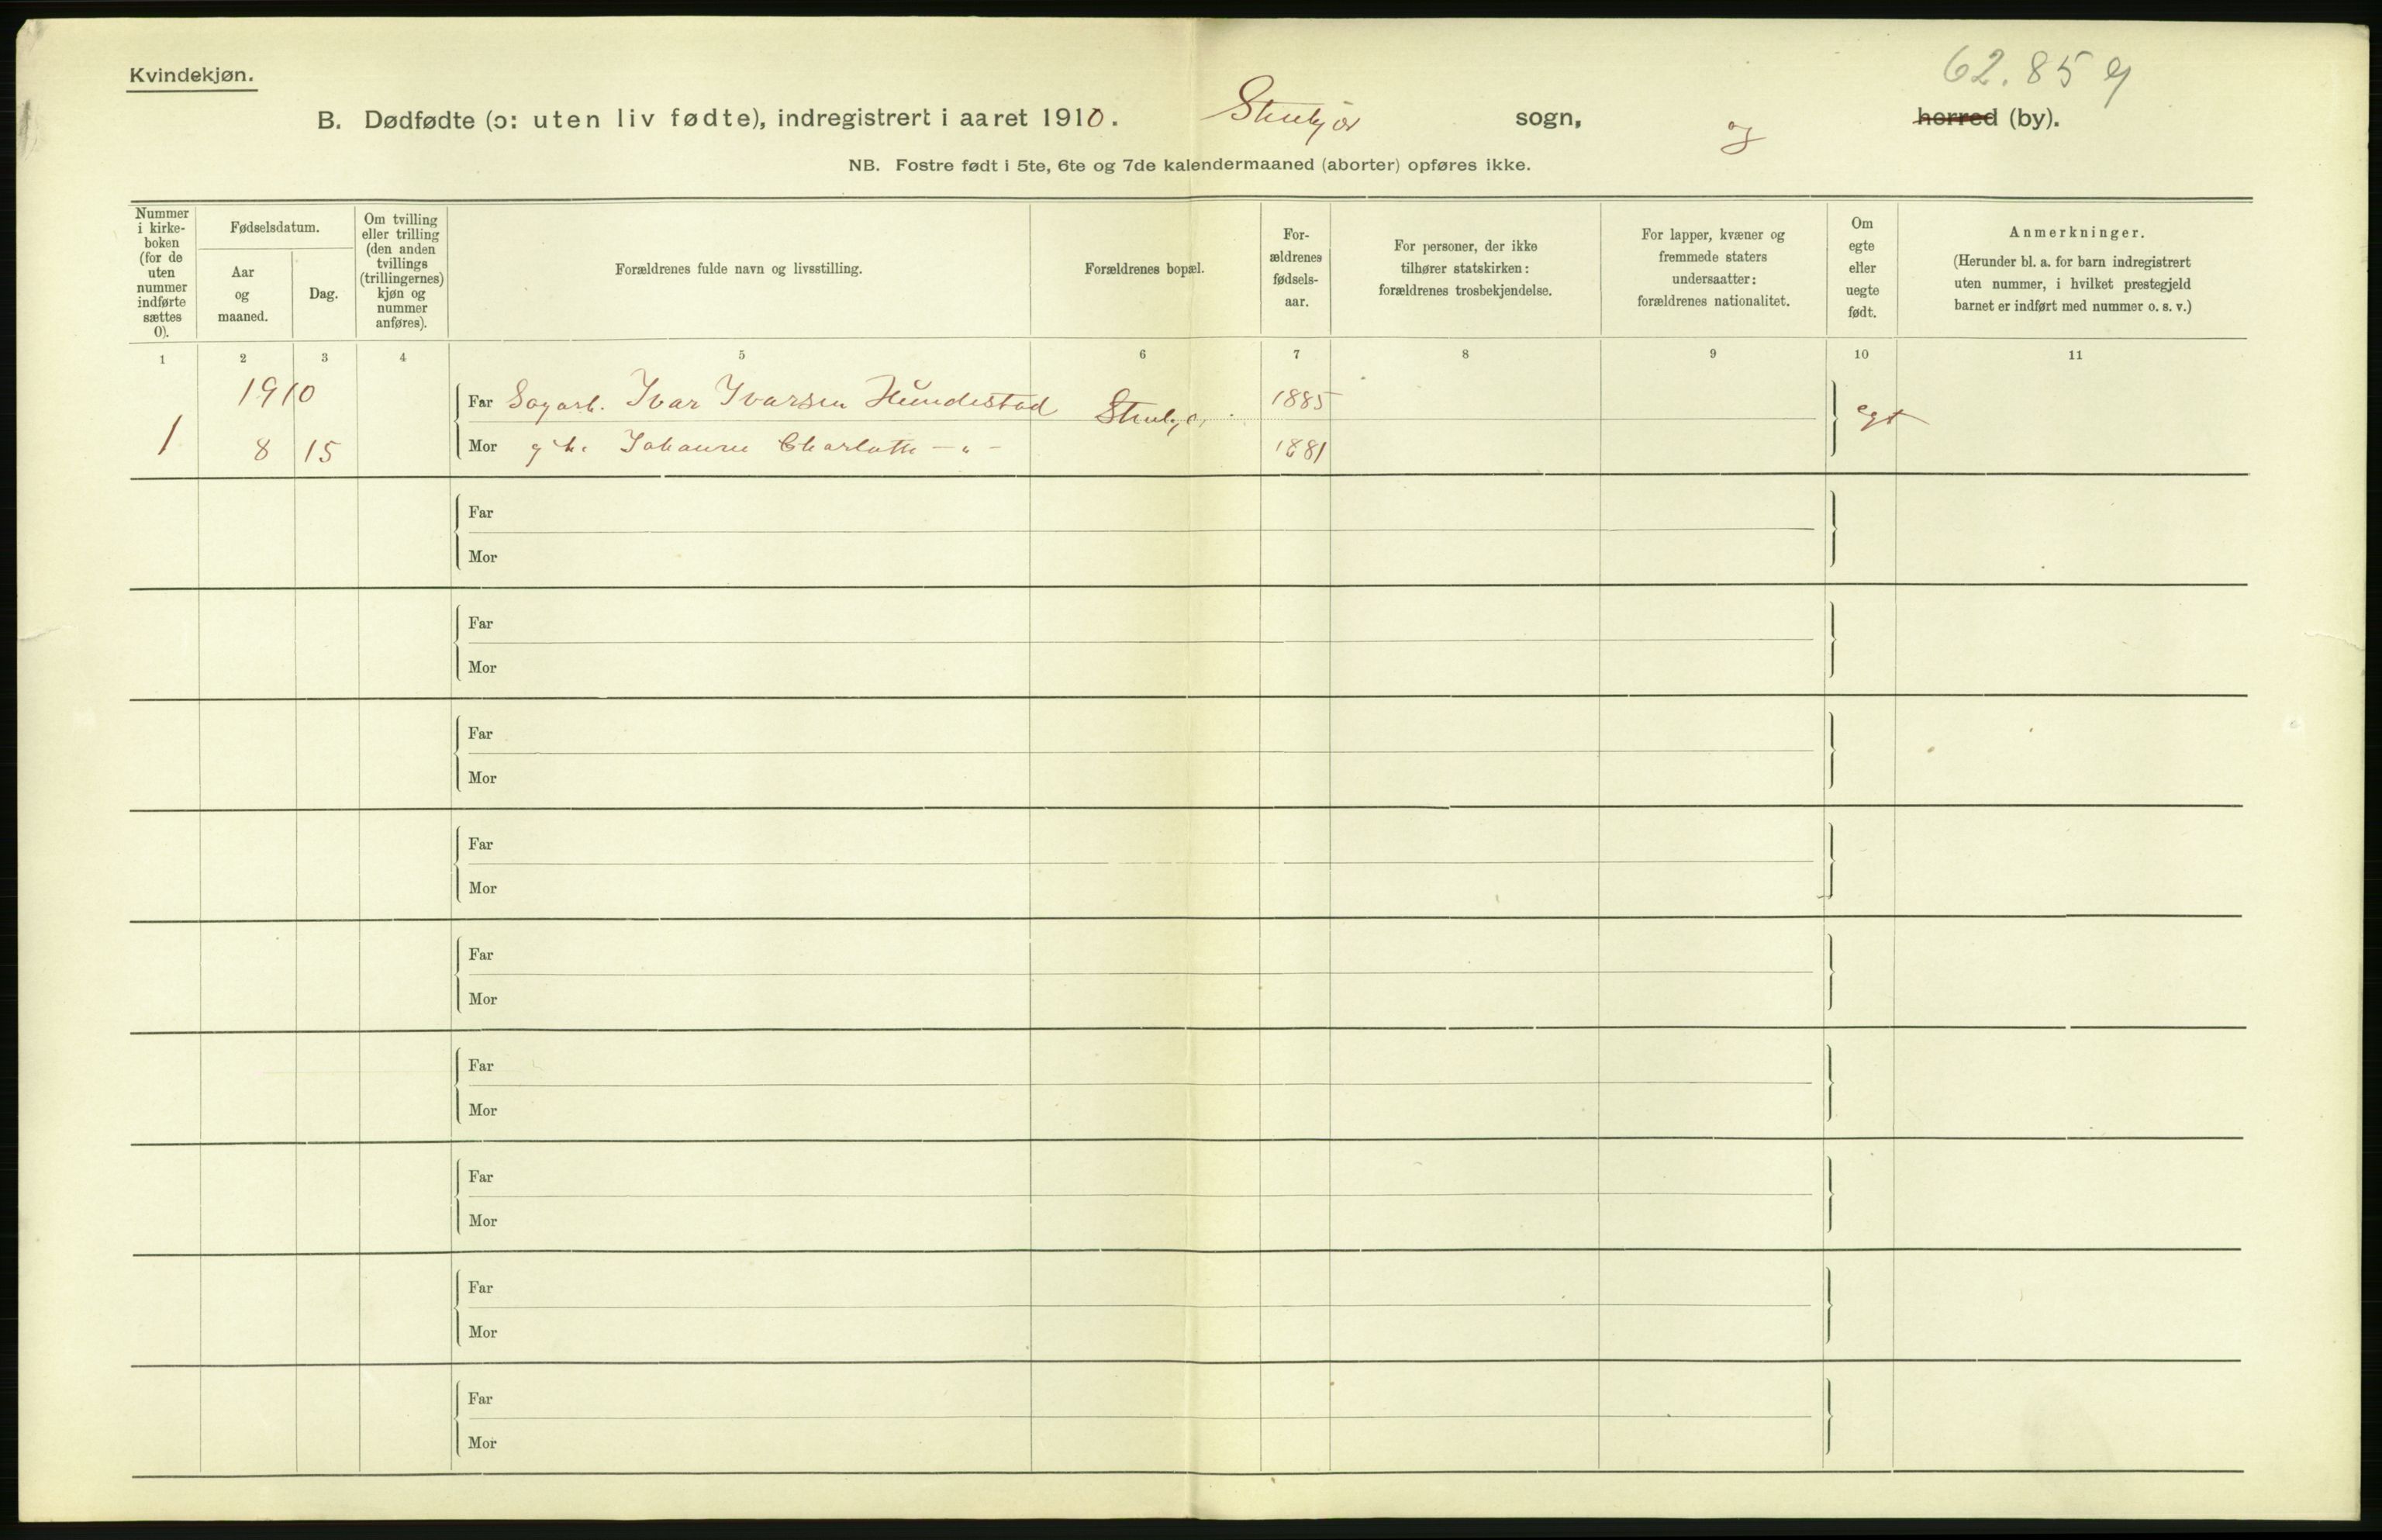 62.85 9
Kvindekjøn.
B. Dødfødte (ɔ: uten liv fødte), indregistrert i aaret 1910. Stenkjær sogn, og horred (by).
NB. Fostre født i 5te, 6te og 7de kalendermaaned (aborter) opføres ikke.
Nummer
i kirke-
boken
(for de
uten
nummer
indførte
sættes
0).
Fødselsdatum.
Aar
og
maaned.
Dag.
Om tvilling
eller trilling
(den anden
tvillings
(trillingernes)
kjøn og
nummer
anføres).
Forældrenes fulde navn og livsstilling.
Forældrenes bopæl.
For-
ældrenes
fødsels-
aar.
For personer, der ikke
tilhører statskirken:
forældrenes trosbekjendelse.
For lapper, kvæner og
fremmede staters
undersaatter:
forældrenes nationalitet.
Om
egte
eller
uegte
født.
Anmerkninger.
(Herunder bl. a. for barn indregistrert
uten nummer, i hvilket prestegjeld
barnet er indført med nummer o. s. v.)
1 2 3 4 5 6 7 8 9 10 11
1910 Far Sagarb. Ivar Ivarsen Hundestad 1885
1 8 15 Mor g. h. Johanne Charlotte — „ — 1881 egt
Far
Mor
Far
Mor
Far
Mor
Far
Mor
Far
Mor
Far
Mor
Far
Mor
Far
Mor
Far
Mor